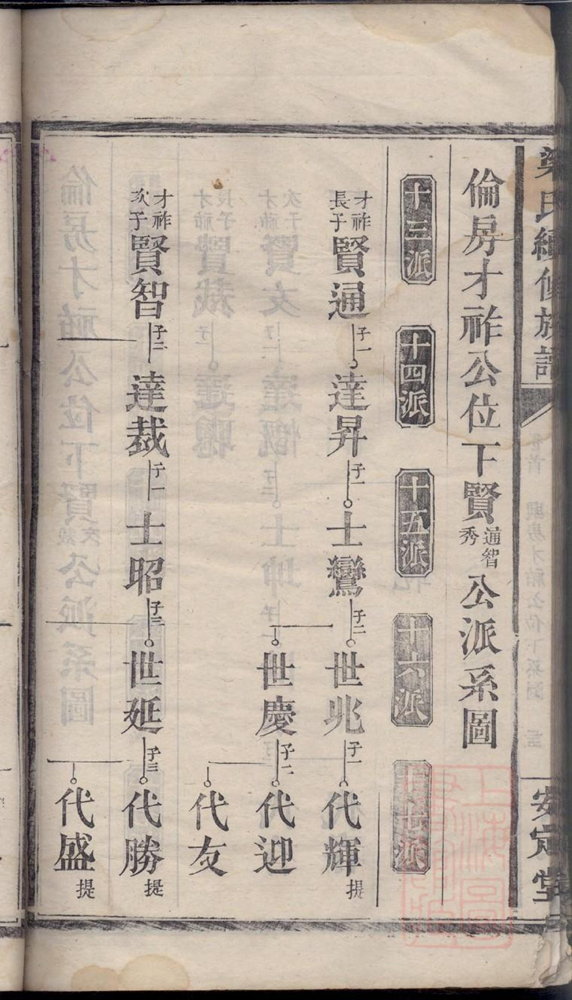 梁氏續修族譜
安定堂
倫房才祚公位下賢通智秀公派系圖
十三派 十四派 十五派 十六派 十七派
才祚長子 賢通 子一 達昇 子一 士鸞 子二 世兆 子一 代輝 提
世慶 子二 代迎
代友
才祚次子 賢智 子二 達裁 子一 士昭 子三 世延 子三 代勝 提
代盛 提